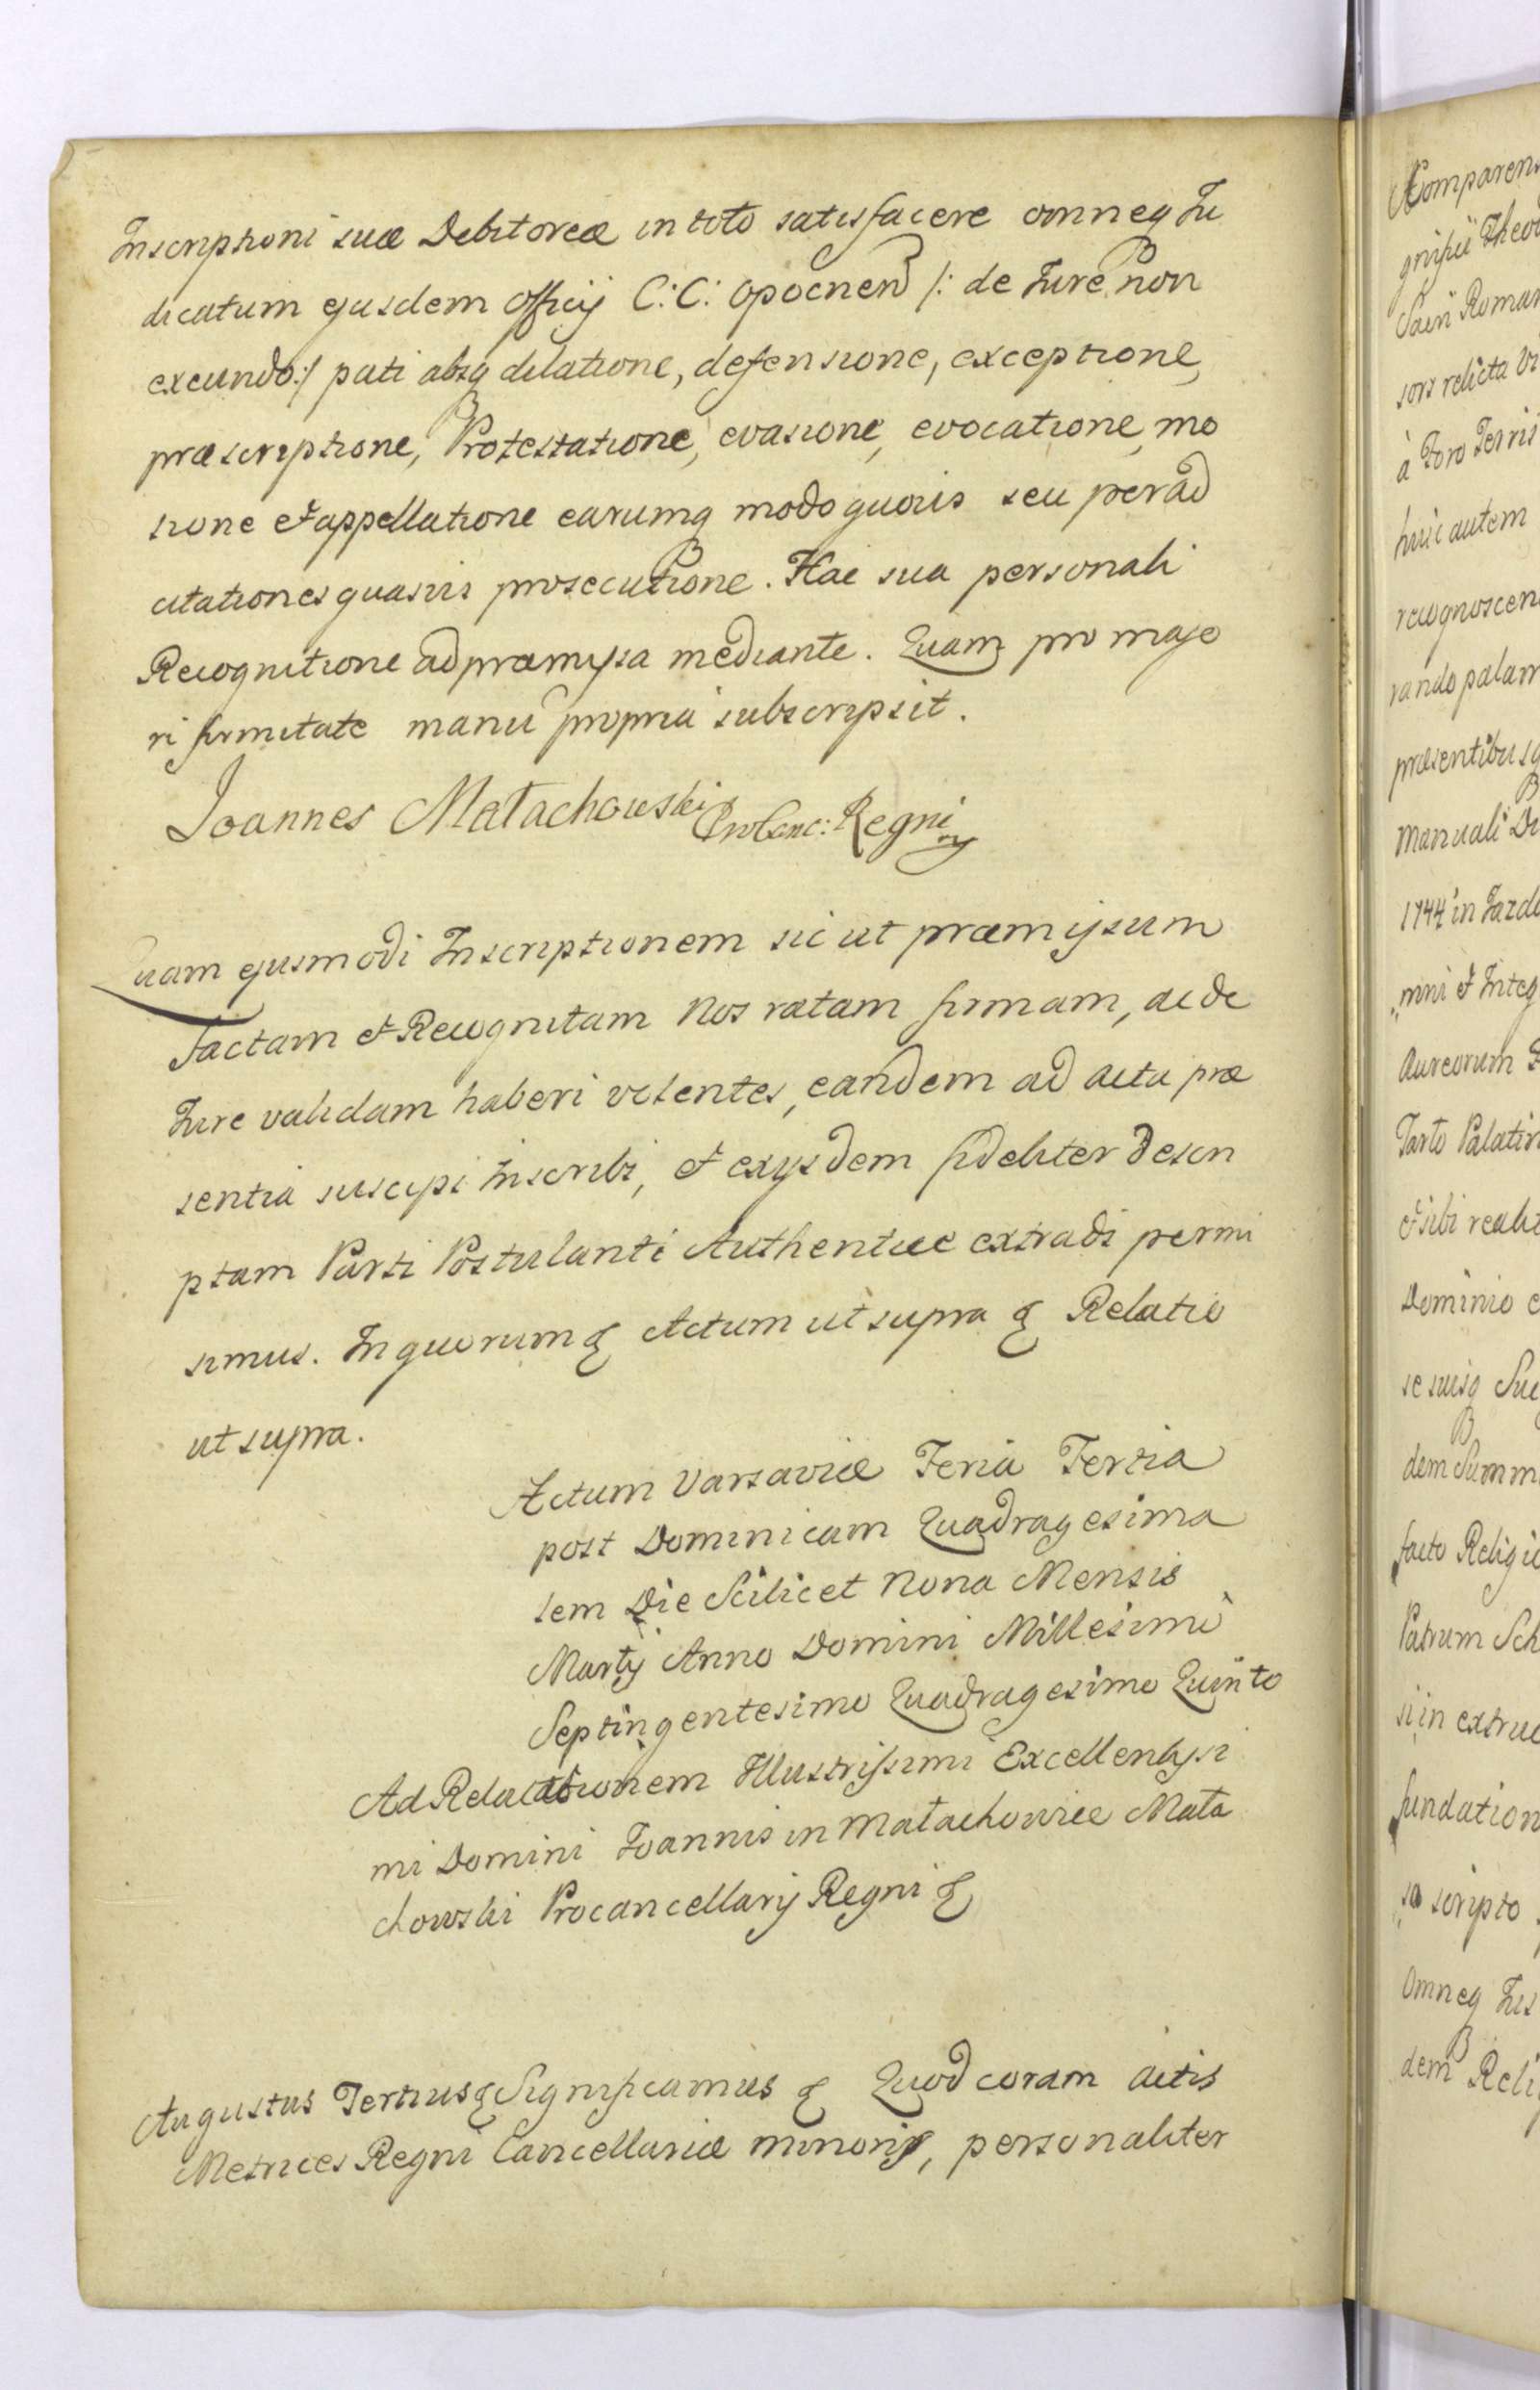 Inscriptioni suæ Debitoreæ in toto satisfacere omneq Iu
dicatum ejusdem Officij C: C: Opocnen /: de Iure non
exeundo :/ pati absq dilatione, defensione, exceptione,
præscriptione, Protestatione, evasione, evocatione, mo
tione et appellatione earumq modo quovis seu per ad
citationes quasvis prosecutione. Hac sua personali
Recognitione ad præmissa mediante. Quam pro majo
ri firmitate manu propria subscripsit.
Joannes Małachowski ProCanc: Regni
Quam ejusmodi Inscriptionem sic ut præmissum
factam et Recognitam Nos ratam firmam, ac de
Iure validam haberi volentes, eandem ad acta præ
sentia suscipi Inscribi, et ex ijsdem fideliter descri
ptam Parti Postulanti Authentice extradi permi
simus. In quorum & Actum ut supra & Relatio
ut supra.
Actum Varsaviæ Feria Tertia
post Dominicam Quadragesima
lem Die Scilicet Nona Mensis
Martij Anno Domini Millesimo
Septingentesimo Quadragesimo Quinto
Ad Relationem Illustrissimi Excellentissi
mi Domini Joannis in Małachowice Mała
chowski Procancellarij Regni &
Augustus Tertius & Significamus & Quod coram actis
Metrices Regni Cancellariæ minoris, personaliter
Comparens
à Foro Terris
huic autem
recognoscen
rando palam
præsentibusq
manuali
1744 in
Aureorum
Palatin
et sibi realit
Dominio
se suisq
dem Summ
facto Religio
Patrum Sch
si in extruc
fundation
scripto
Omneq Ius
dem Reli